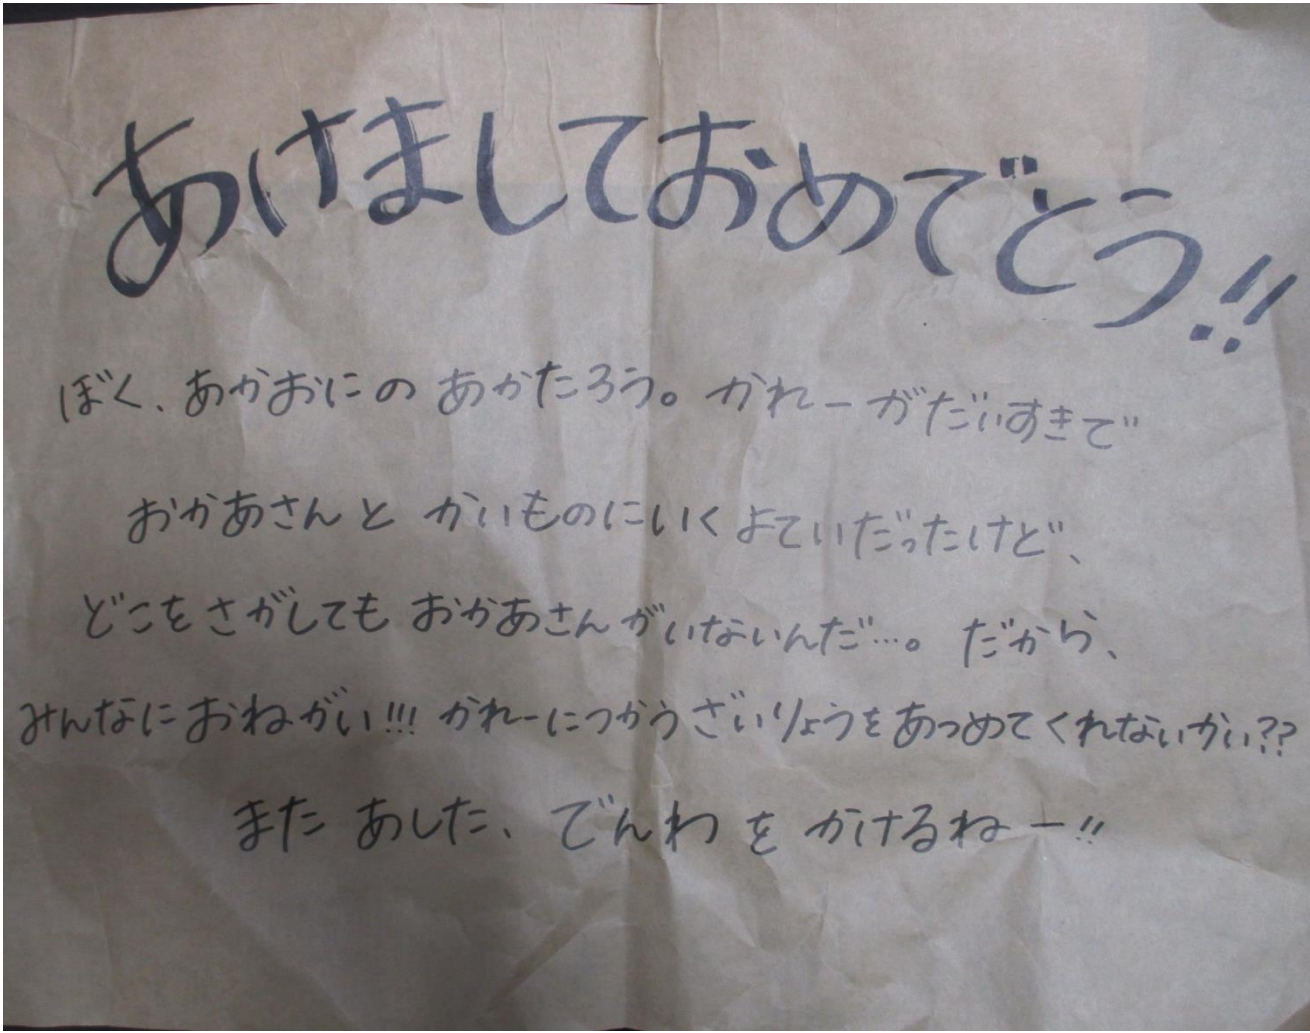 あけましておめでとう!!
ぼく、あかおにの あかたろう。かれーがだいすきで
おかあさんと かいものにいく よていだったけど、
どこをさがしても おかあさんがいないんだ…。だから、
みんなにおねがい!!! かれーにつかうざいりょうをあつめてくれないかい??
また あした、でんわ を かけるねー!!